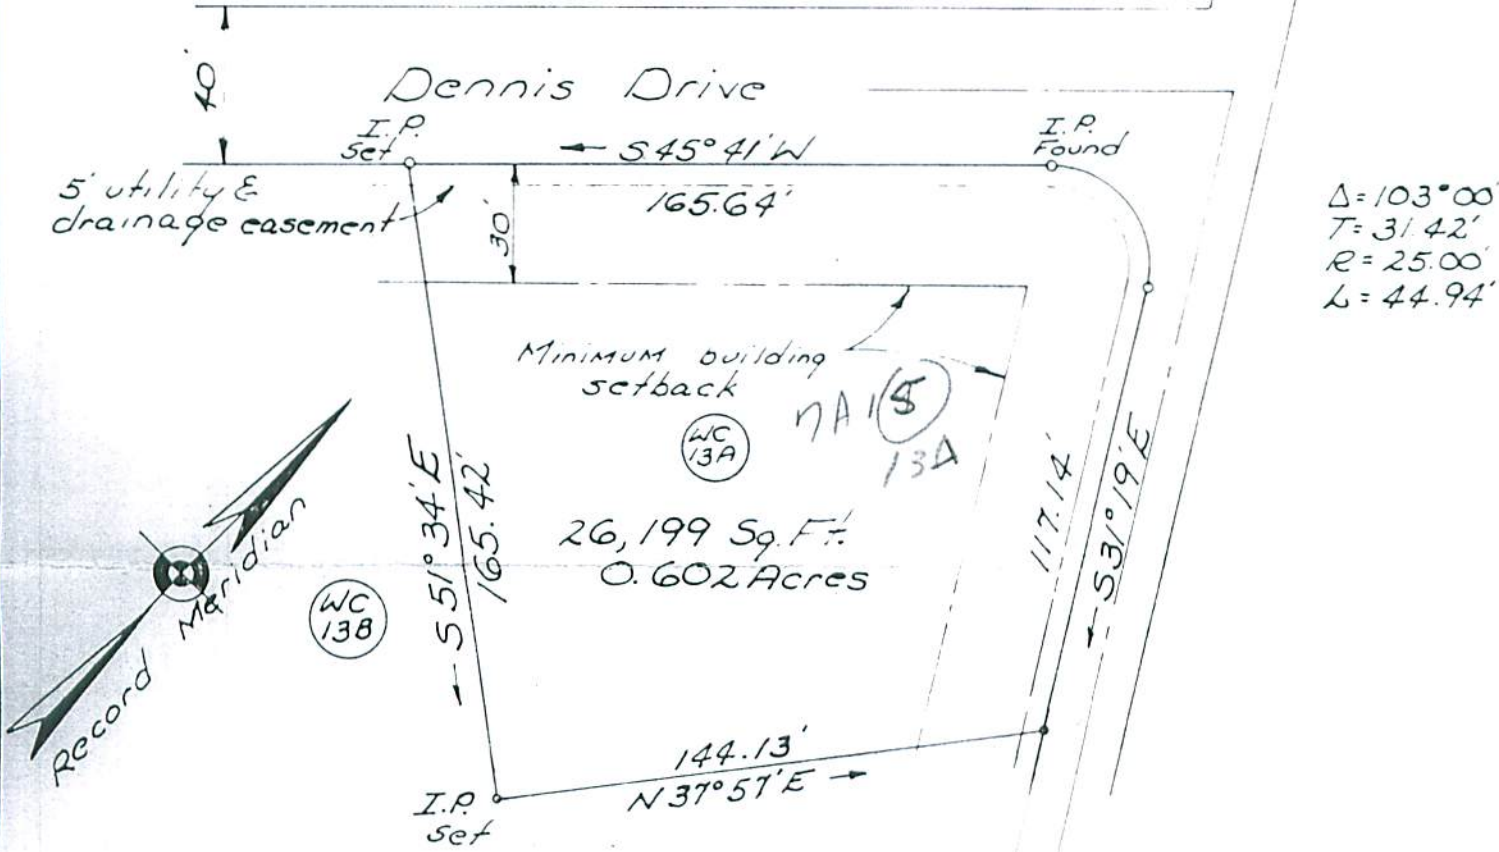 40'
Dennis Drive
I.P.
Set
← S 45° 41' W
I.P.
Found
5' utility &
drainage easement
165.64'
30'
Δ = 103° 00'
T = 31.42'
R = 25.00'
L = 44.94'
Minimum building
setback
WC
13A
15
13A
S 51° 34' E
165.42'
117.14'
S 31° 19' E
26,199 Sq. Ft.
0.602 Acres
Record Meridian
WC
13B
144.13'
N 37° 57' E →
I.P.
Set